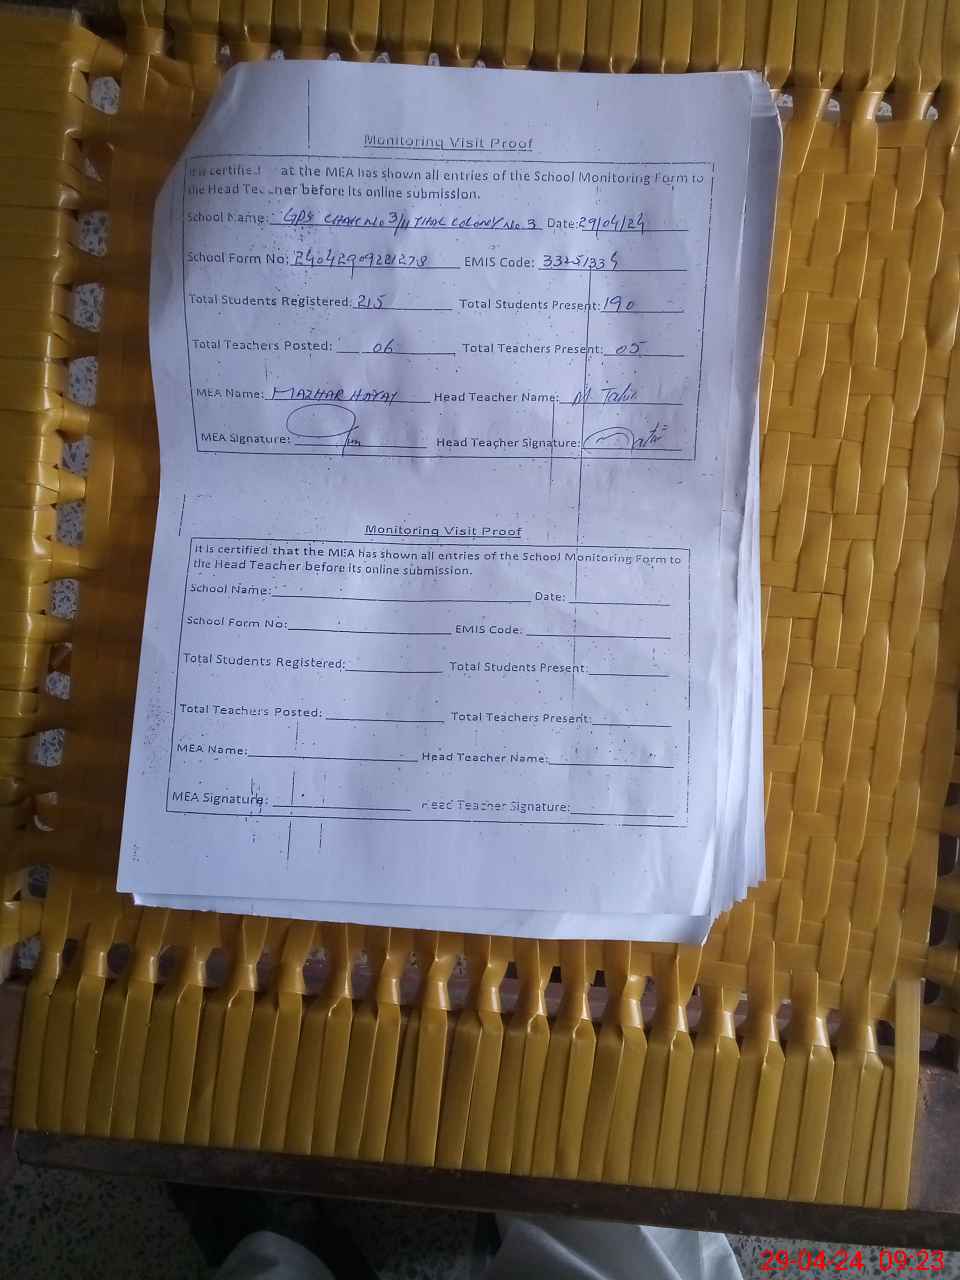 Monitoring Visit Proof
It is certified at the MEA has shown all entries of the School Monitoring Form to
the Head Teacher before its online submission.
School Name: GPS CHAK No 3/11 THAL COLONY No. 3 Date: 29/04/24
School Form No: EMIS Code: 33251334
Total Students Registered: 215 Total Students Present: 190
Total Teachers Posted: 06 Total Teachers Present: 05
MEA Name: MAZHAR HAYAT Head Teacher Name: M Tahir
MEA Signature: Head Teacher Signature:
Monitoring Visit Proof
It is certified that the MEA has shown all entries of the School Monitoring Form to
the Head Teacher before its online submission.
School Name: Date:
School Form No: EMIS Code:
Total Students Registered: Total Students Present:
Total Teachers Posted: Total Teachers Present:
MEA Name: Head Teacher Name:
MEA Signature: Head Teacher Signature:
29-04-24 09:23